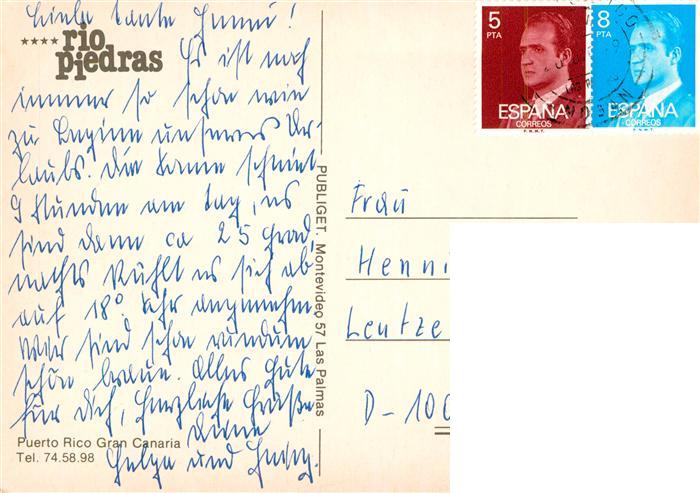 Liebe Tante Henni!
★★★★ rio
piedras
Es ist noch
immer so schön wie
zu Beginn unseres Ur-
laubs. Die Sonne scheint
9 Stunden am Tag, es
sind dann ca 25 Grad,
nachts kühlt es sich ab
auf 18°. Sehr angenehm
Wir sind schon rundum
schön braun. Alles Gute
für Dich, herzliche Grüße
Deine
Helga und
Puerto Rico Gran Canaria
Tel. 74.58.98
PUBLIGET. Montevideo 57 Las Palmas
5
PTA
ESPAÑA
CORREOS
F.N.M.T.
8
PTA
ESPAÑA
CORREOS
F.N.M.T.
Frau
Henni
Leutze
D-100